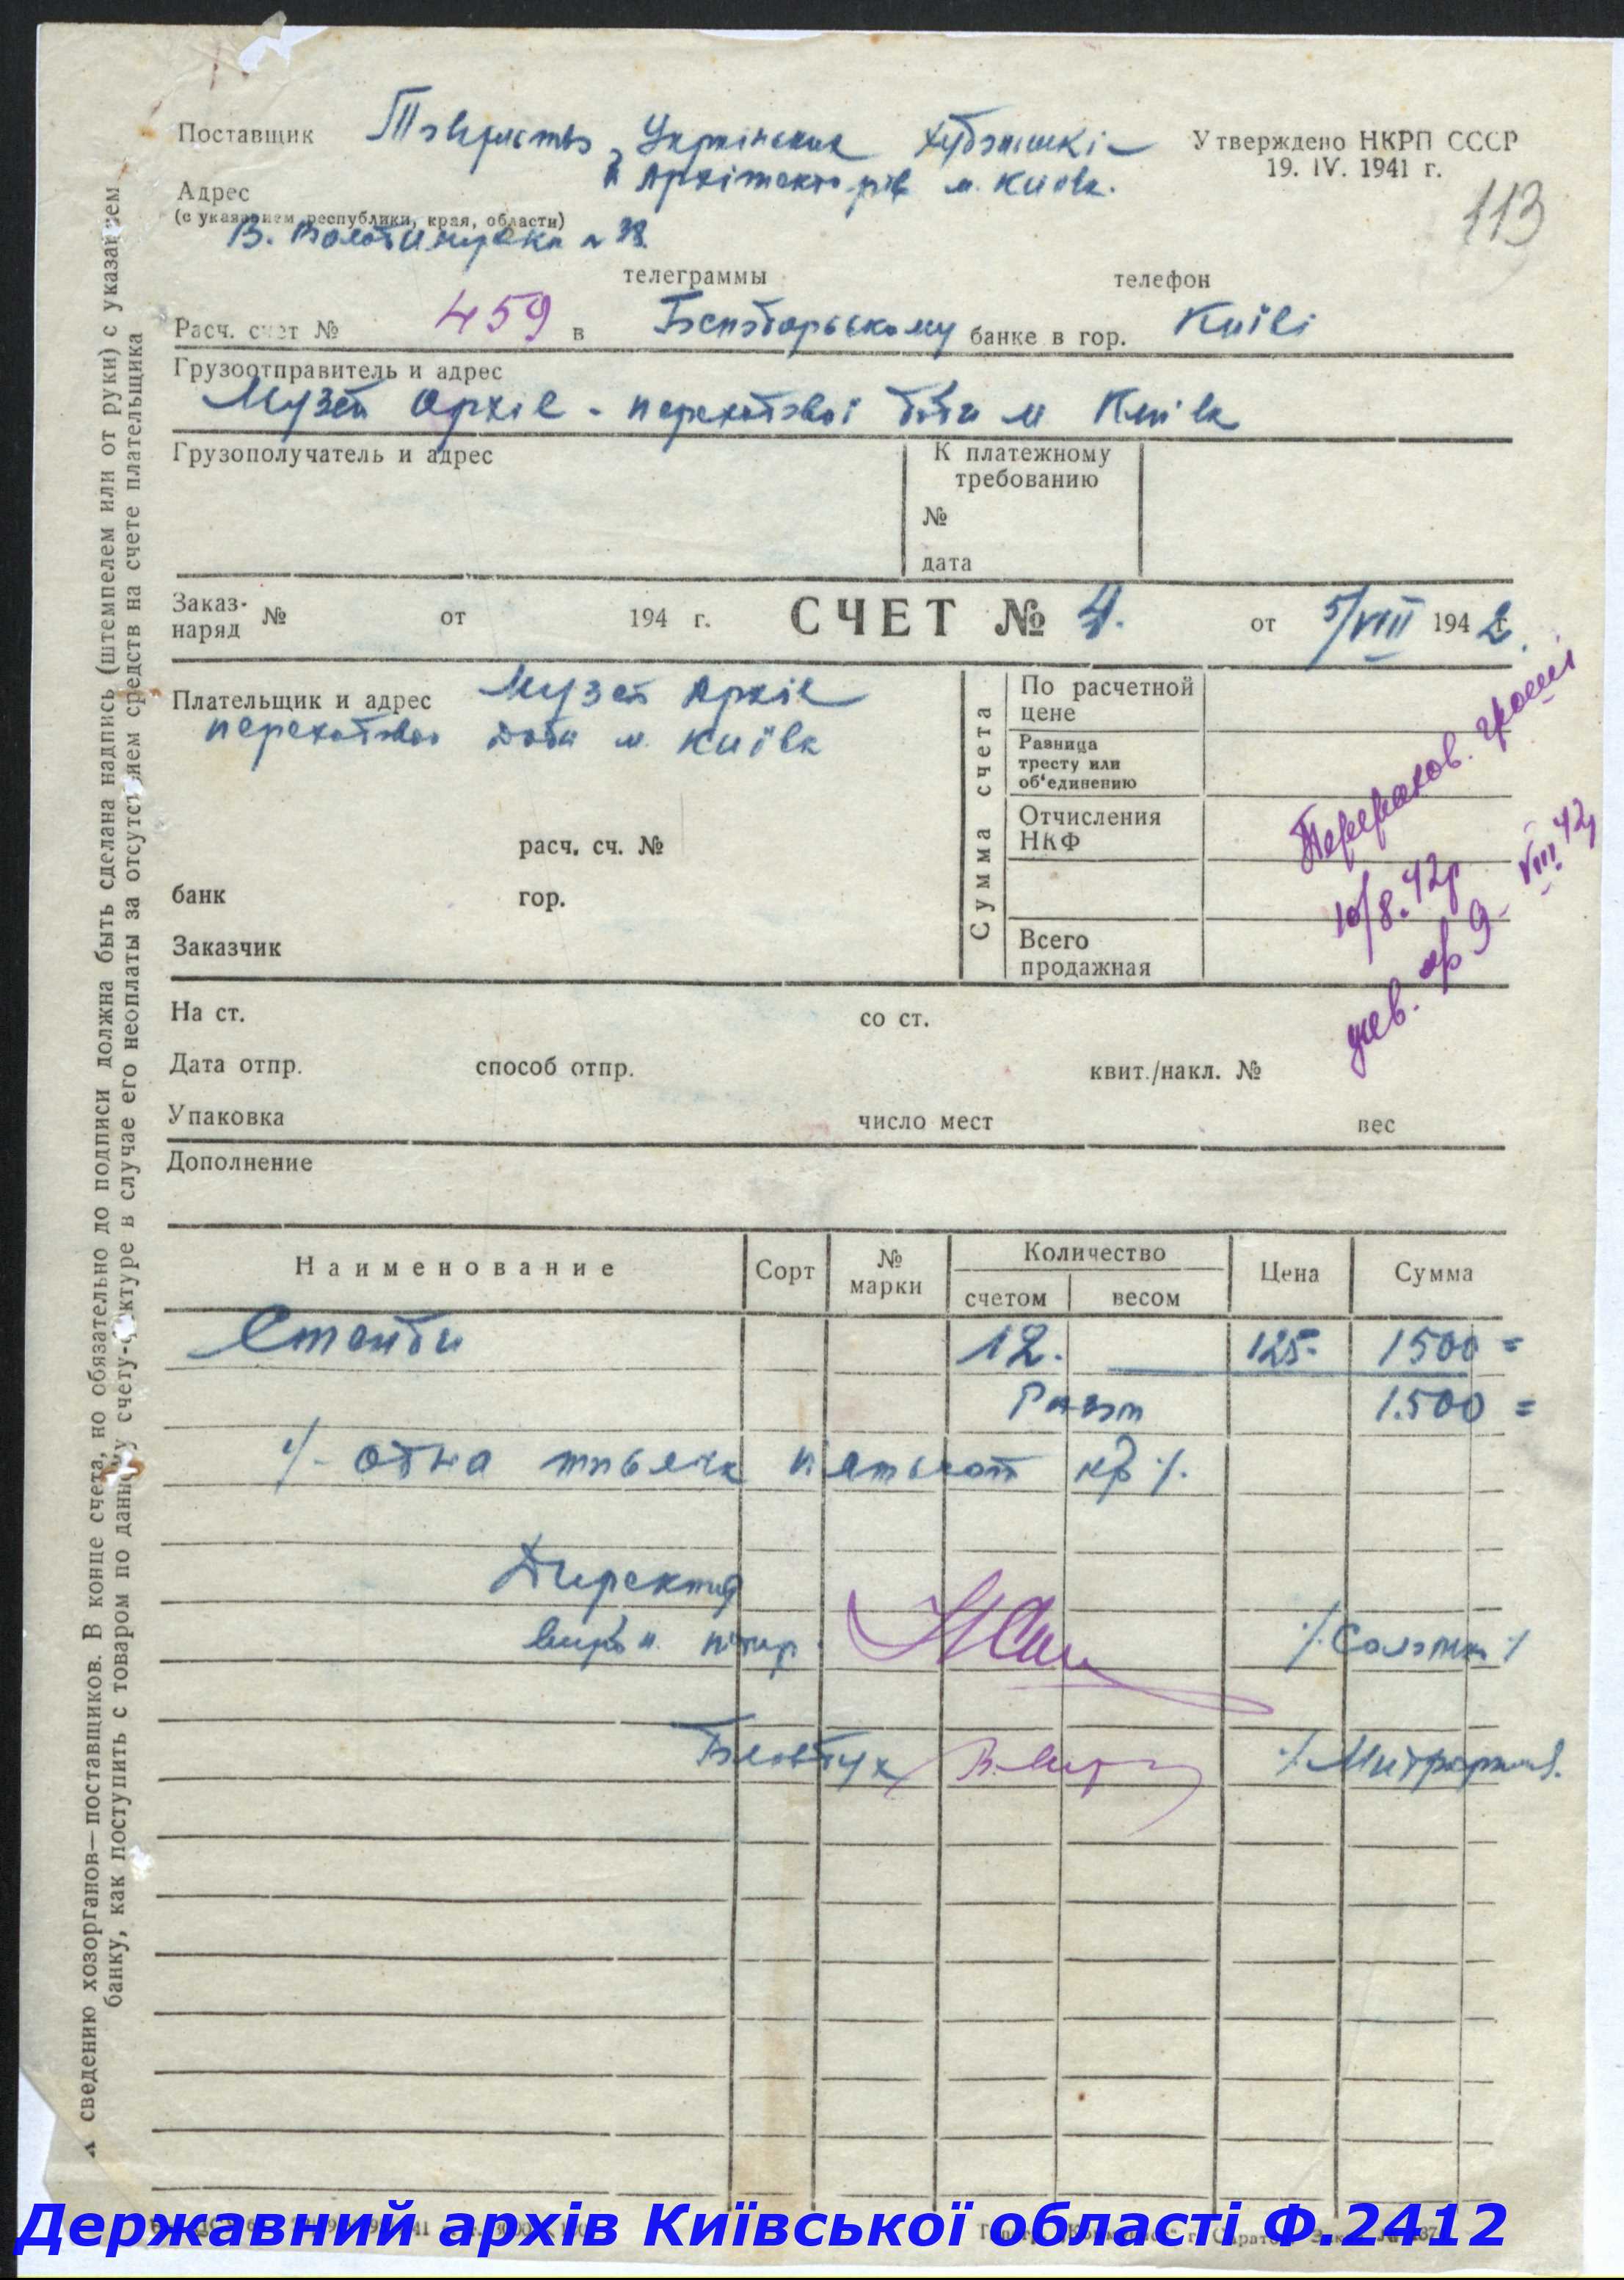 Поставщик Товариство Українських Художників
й Архітекторів м. Київа.
Утверждено НКРП СССР
19. IV. 1941 г.
113
Адрес
(с указанием республики, края, области)
В. № 38
телеграммы телефон
Расч. счет № 459 в банке в гор. Київі
Грузоотправитель и адрес
Музей Архів - переходової доби м Київа
Грузополучатель и адрес
К платежному
требованию
№
дата
Заказ-
наряд № от 194 г. СЧЕТ № 4. от 5/VIII 1942 г.
Плательщик и адрес Музей Архів
переходової доби м. Київа
расч. сч. №
банк гор.
Заказчик
Сумма счета
По расчетной
цене
Разница
тресту или
об'единению
Отчисления
НКФ
Всего
продажная
Перераков. гроші
10/8. 42р
чев. ор 9 - VIII 42
На ст. со ст.
Дата отпр. способ отпр. квит./накл. №
Упаковка число мест вес
Дополнение
Наименование Сорт № марки Количество счетом весом Цена Сумма
Стенди 12. 125- 1500 =
Разом 1.500 =
/- одна тисяча пятьсот крб /.
Директор
вироб.
Бухг
В. Митр
К сведению хозорганов—поставщиков. В конце счета, но обязательно до подписи должна быть сделана надпись (штемпелем или от руки) с указанием
банку, как поступить с товаром по данному счету-фактуре в случае его неоплаты за отсутствием средств на счете плательщика
Державний архів Київської області Ф.2412